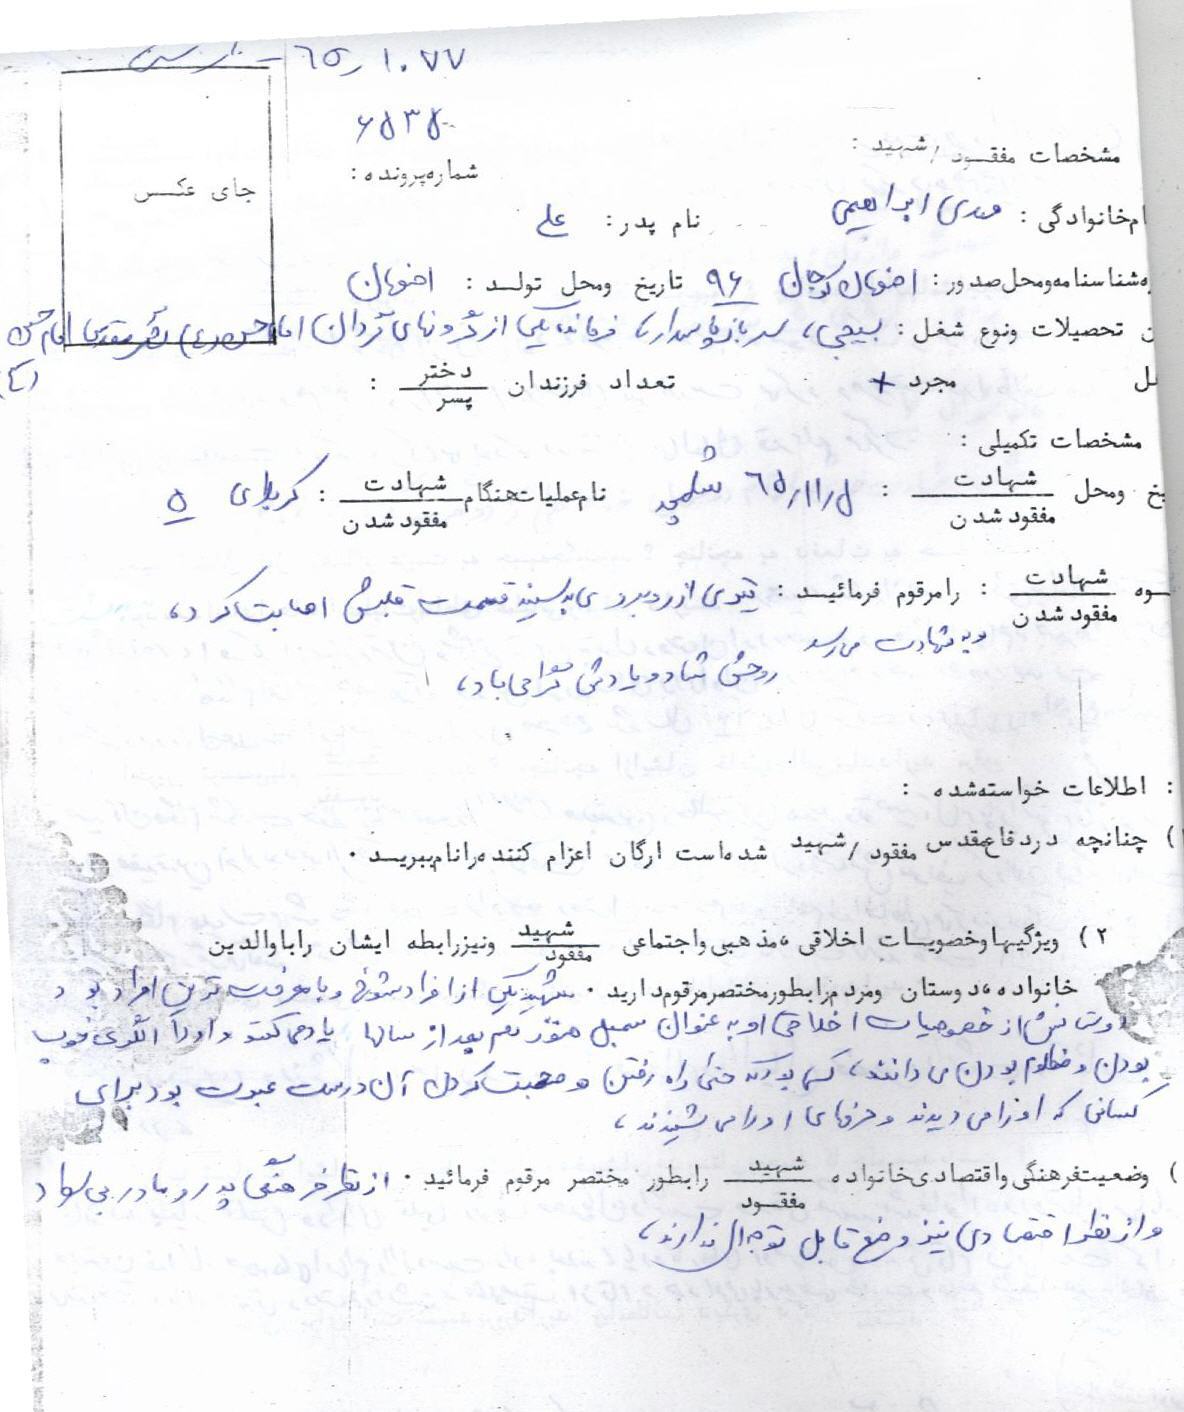 ۶۵٫۱۰۷۷
۶۵۳۵۰
جای عکس
مشخصات مفقود / شهید :
شماره پرونده :
ام خانوادگی : مهدی ابراهیمی نام پدر : علی
ه شناسنامه و محل صدور : اصفهان کوجان ۹۶ تاریخ و محل تولد : اصفهان
ن تحصیلات و نوع شغل : بسیجی، سرباز پاسدار، فرمانده یکی از گروهانهای گردان امام حسن (ع) لشکر مقدس امام حسین (ع)
ل مجرد + تعداد فرزندان دختر / پسر :
مشخصات تکمیلی :
یخ و محل شهادت / مفقود شدن : ۶۵/۱۱/۵ شلمچه نام عملیات هنگام شهادت / مفقود شدن : کربلای ۵
وه شهادت / مفقود شدن : را مرقوم فرمائید : تیری از روبروی به سینه قسمت قلبش اصابت کرد،
و به شهادت می رسد
روحش شاد و یادش گرامی باد،
: اطلاعات خواسته شده :
) چنانچه در دفاع مقدس مفقود / شهید شده است ارگان اعزام کننده را نام ببرید .
۲ ) ویژگیها و خصویسات اخلاقی ، مذهبی و اجتماعی شهید / مفقود و نیز رابطه ایشان را با والدین
خانواده ، دوستان و مردم را بطور مختصر مرقوم دارید . شهید یکی از افراد شوخ و با معرفت ترین افراد بود و
دوستانش از خصوصیات اخلاقی او به عنوان سمبل هنوز هم بعد از سالها یاد می کنند و او را الگوی خوب
بودن و مظلوم بودن می دانند، کسی بود که حتی راه رفتن و صحبت کردن آن درست عبرت بود برای
کسانی که او را می دیدند و حرفهای او را می شنیدند،
) وضعیت فرهنگی و اقتصادی خانواده شهید / مفقود را بطور مختصر مرقوم فرمائید . از نظر فرهنگی پدر و مادر بی سواد
و از نظر اقتصادی نیز وضع قابل توجه ای ندارند،